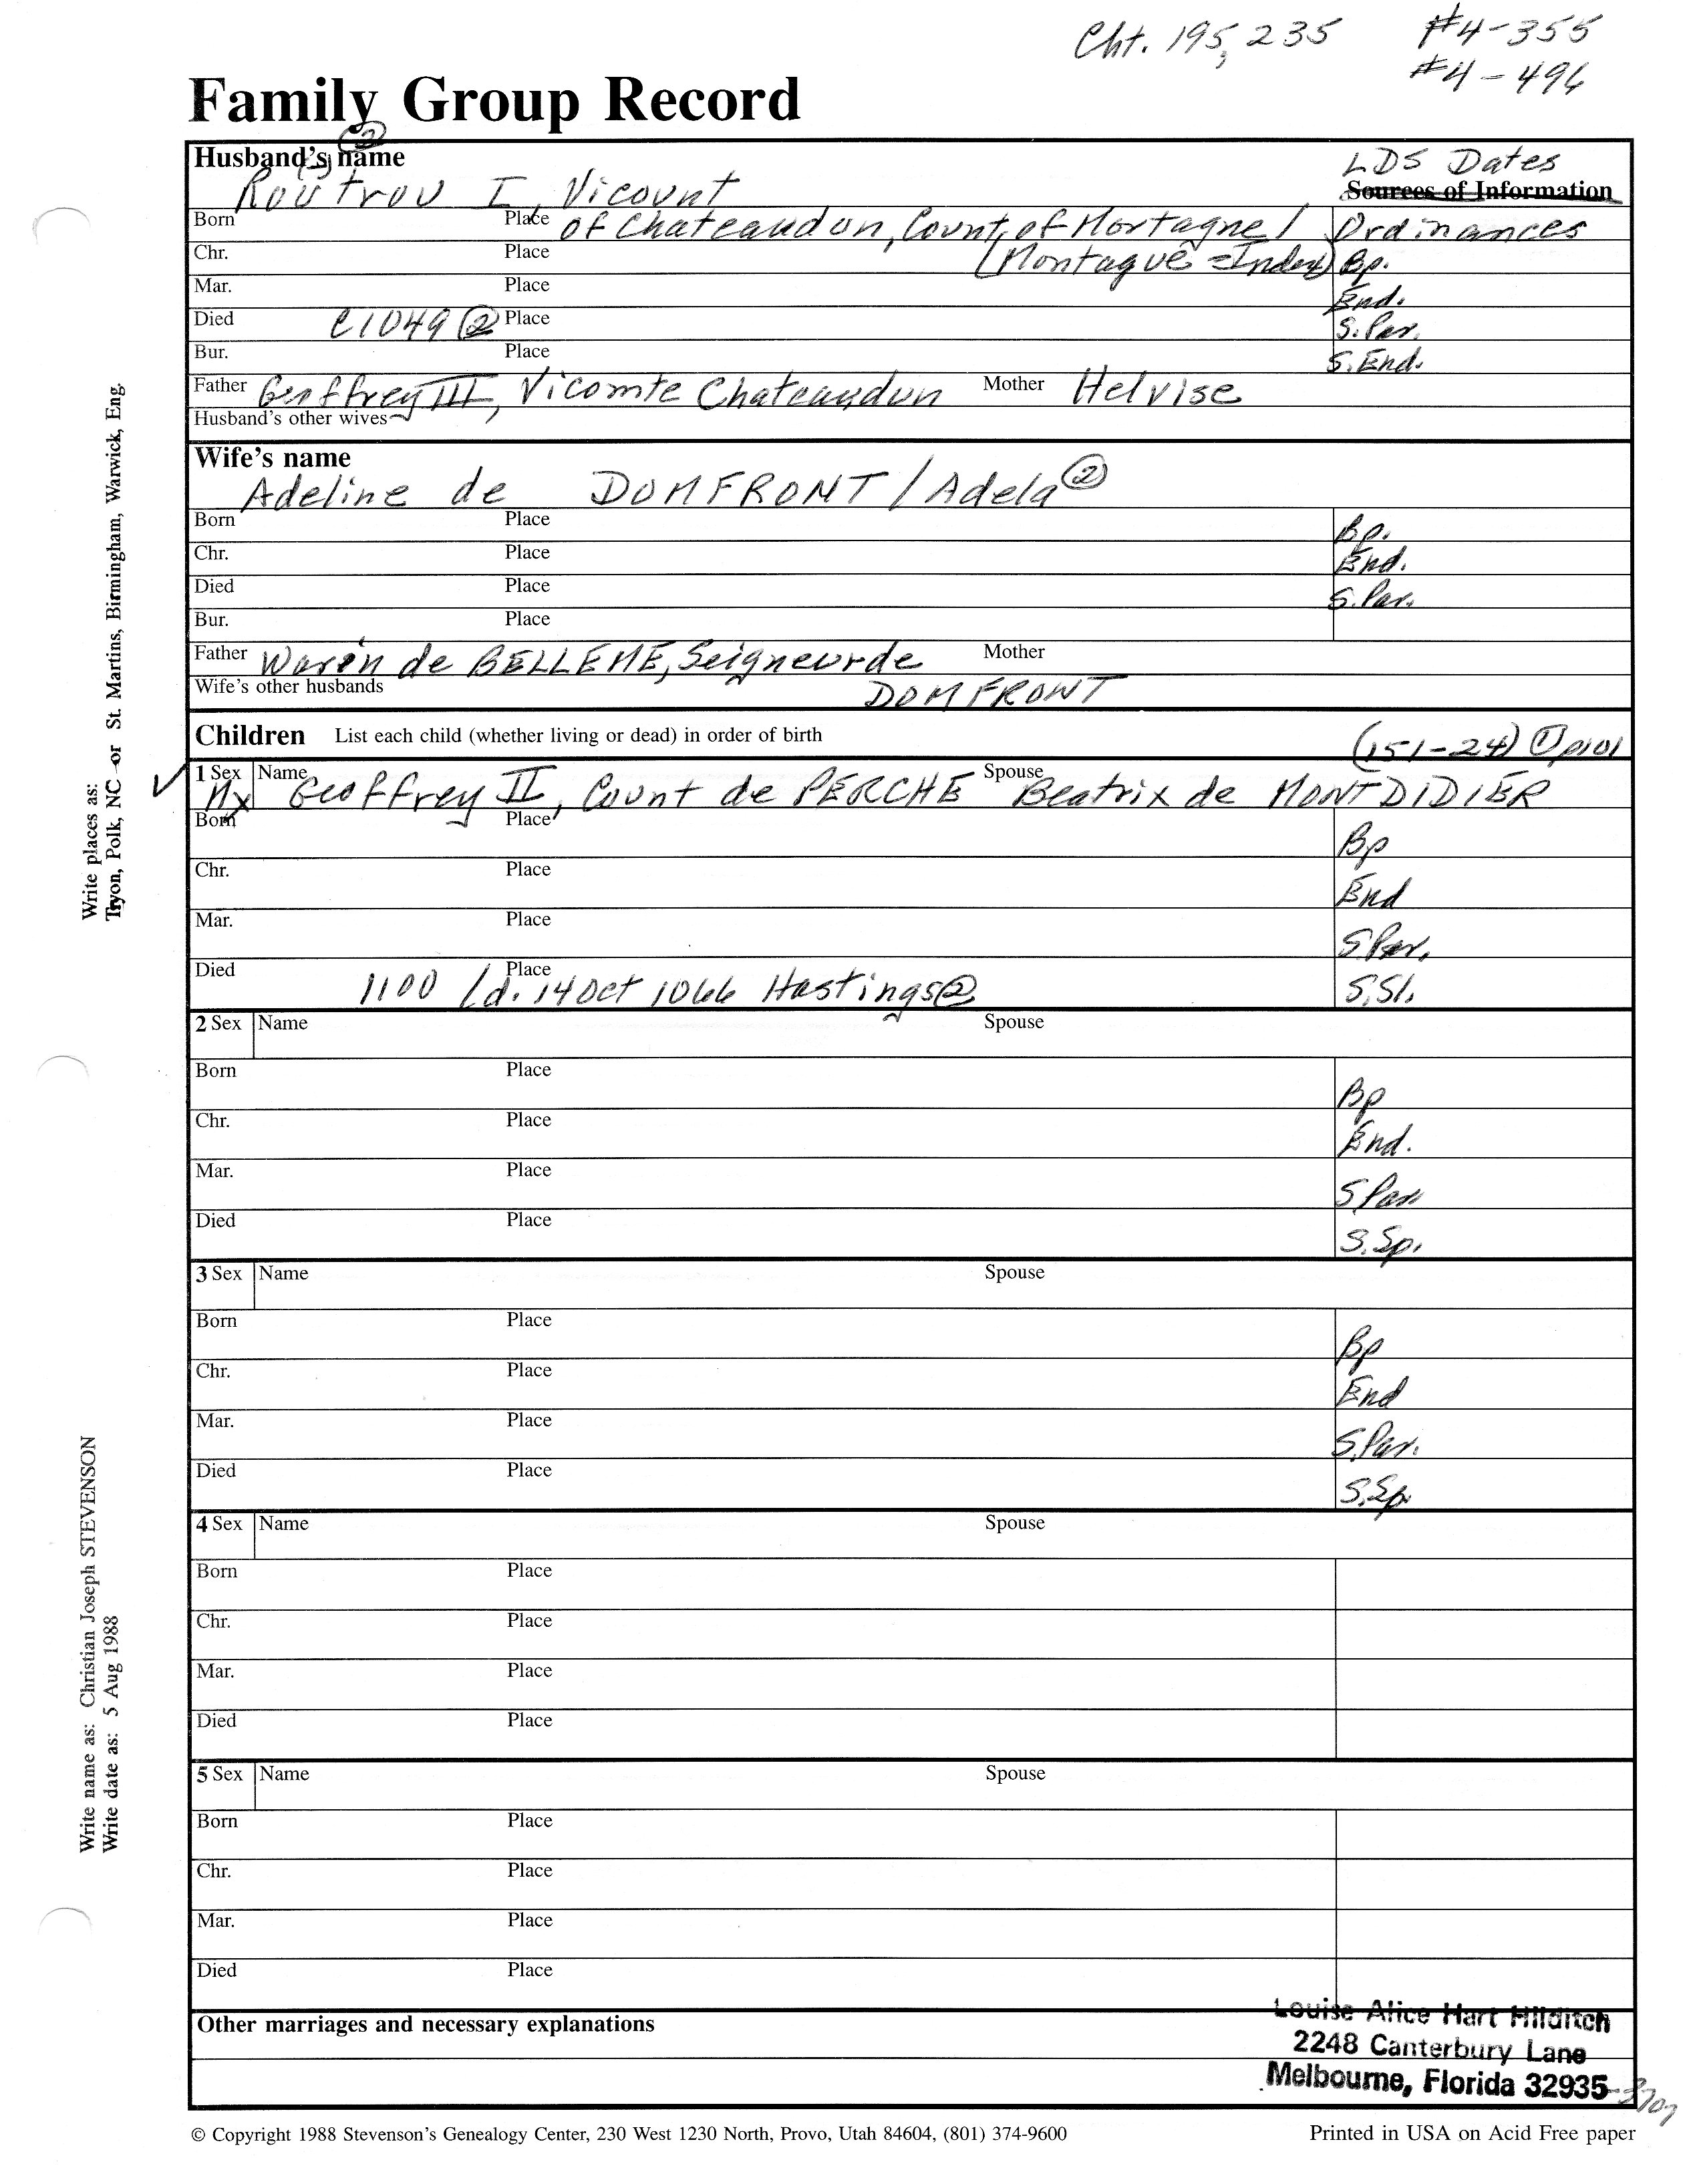 Cht. 195, 235 #4-355
#4-496
Family Group Record
Husband's name (s) ②
Routrou I, Vicount
LDS Dates
Sources of Information
Born Place of Chateaudun, Count of Mortagne / Ordinances
Chr. Place (Montague = Index) Bp.
Mar. Place End.
Died C1049 ② Place S. Par.
Bur. Place S. End.
Father Geoffrey III, Vicomte Chateaudun Mother Helvise
Husband's other wives
Wife's name
Adeline de DOMFRONT / Adela ②
Born Place Bp.
Chr. Place End.
Died Place S. Par.
Bur. Place
Father Warin de BELLEME, Seigneur de Mother
Wife's other husbands DOMFRONT
Children List each child (whether living or dead) in order of birth (151-24) ① p101
✓ 1 Sex Mx Name Geoffrey II, Count de PERCHE Spouse Beatrix de MONTDIDIER
Born Place Bp
Chr. Place End
Mar. Place S Par.
Died 1100 / d. 14 Oct 1066 Hastings ② Place
2 Sex Name Spouse
Born Place Bp
Chr. Place End.
Mar. Place S Par
Died Place S. Sp.
3 Sex Name Spouse
Born Place Bp
Chr. Place End
Mar. Place S. Par.
Died Place S. Sp.
4 Sex Name Spouse
Born Place
Chr. Place
Mar. Place
Died Place
5 Sex Name Spouse
Born Place
Chr. Place
Mar. Place
Died Place
Other marriages and necessary explanations
Louise Alice Hart Hilditch
2248 Canterbury Lane
Melbourne, Florida 32935-3707
© Copyright 1988 Stevenson's Genealogy Center, 230 West 1230 North, Provo, Utah 84604, (801) 374-9600 Printed in USA on Acid Free paper
Write places as:
Tryon, Polk, NC or St. Martins, Birmingham, Warwick, Eng.
Write name as: Christian Joseph STEVENSON
Write date as: 5 Aug 1988